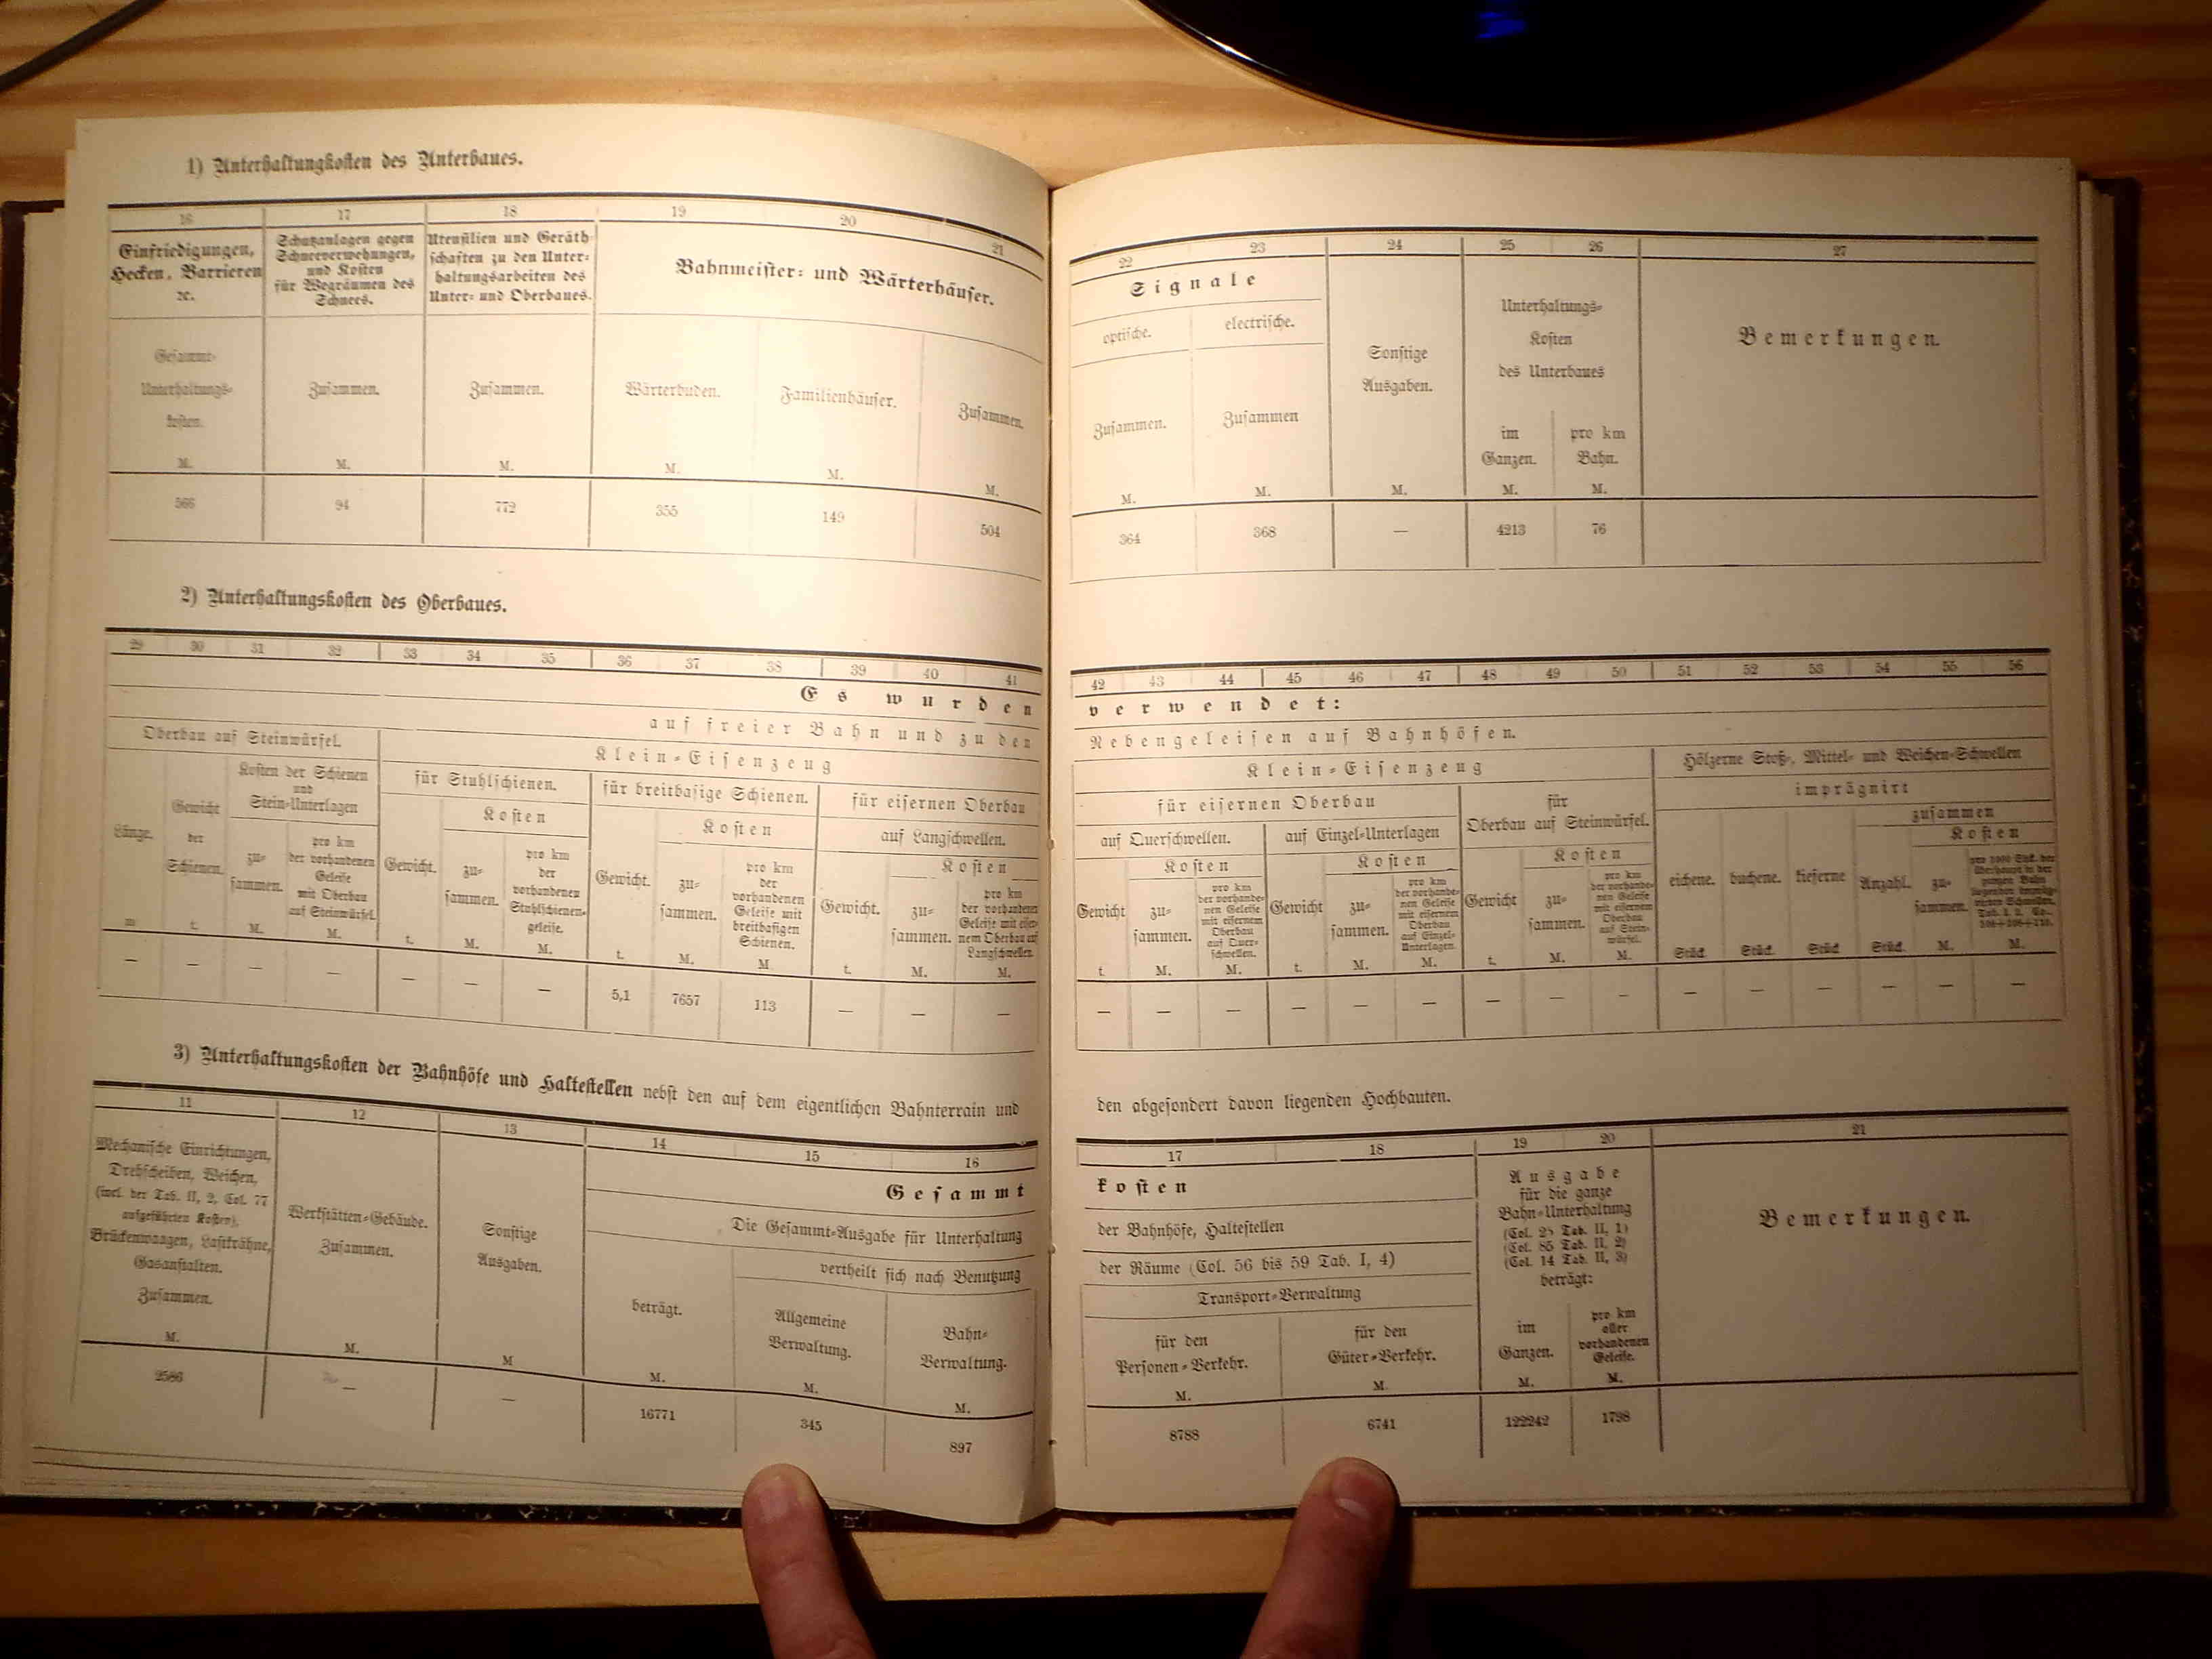 1) Unterhaltungkosten des Unterbaues.
16 17 18 19 20 21
Einfriedigungen, Hecken, Barrieren ꝛc.
Schutzanlagen gegen Schneeverwehungen, und Kosten für Wegräumen des Schnees.
Utensilien und Geräthschaften zu den Unter- haltungsarbeiten des Unter- und Oberbaues.
Bahnmeister- und Wärterhäuser.
Gesammt- Unterhaltungs- kosten.
Zusammen.
Zusammen.
Wärterbuden.
Familienhäuser.
Zusammen.
M. M. M. M. M. M.
566 94 772 355 149 504
22 23 24 25 26 27
Signale
optische.
electrische.
Zusammen.
Zusammen
Sonstige Ausgaben.
Unterhaltungs- Kosten des Unterbaues
im Ganzen.
pro km Bahn.
Bemerkungen.
M. M. M. M. M.
364 368 — 4213 76
2) Unterhaltungskosten des Oberbaues.
29 30 31 32 33 34 35 36 37 38 39 40 41
Es wurden
auf freier Bahn und zu den
Oberbau auf Steinwürfel.
Klein-Eisenzeug
Länge.
Gewicht der Schienen.
Kosten der Schienen und Stein-Unterlagen
zu- sammen.
pro km der vorhandenen Geleise mit Oberbau auf Steinwürfel
für Stuhlschienen.
Gewicht.
Kosten
zu- sammen.
pro km der vorhandenen Stuhlschienen- geleise.
für breitbasige Schienen.
Gewicht.
Kosten
zu- sammen.
pro km der vorhandenen Geleise mit breitbasigen Schienen.
für eisernen Oberbau
auf Langschwellen.
Gewicht.
Kosten
zu- sammen.
pro km der vorhandenen Geleise mit eiser- nem Oberbau auf Langschwellen.
m t. M. M. t. M. M. t. M. M t. M. M.
— — — — — — — 5,1 7657 113 — — —
42 43 44 45 46 47 48 49 50 51 52 53 54 55 56
verwendet:
Nebengeleisen auf Bahnhöfen.
Klein-Eisenzeug
für eisernen Oberbau
auf Querschwellen.
Gewicht
Kosten
zu- sammen.
pro km der vorhande- nen Geleise mit eisernem Oberbau auf Quer- schwellen.
auf Einzel-Unterlagen
Gewicht
Kosten
zu- sammen.
pro km der vorhande- nen Geleise mit eisernem Oberbau auf Einzel- Unterlagen.
für Oberbau auf Steinwürfel.
Gewicht
Kosten
zu- sammen.
pro km der vorhande- nen Geleise mit eisernem Oberbau auf Stein- würfel.
Hölzerne Stoß-, Mittel- und Weichen-Schwellen
imprägnirt
eichene.
buchene.
kieferne
zusammen
Anzahl.
Kosten
zu- sammen.
t. M. M. t. M. M. t. M. M. Stück Stück. Stück Stück. M. M.
— — — — — — — — — — — — — — —
3) Unterhaltungskosten der Bahnhöfe und Haltestellen nebst den auf dem eigentlichen Bahnterrain und
11 12 13 14 15 16
Mechanische Einrichtungen, Drehscheiben, Weichen, (incl. der Tab. II, 2, Col. 77 aufgeführten Kosten), Brückenwaagen, Lastkrähne, Gasanstalten.
Zusammen.
Werkstätten-Gebäude.
Zusammen.
Sonstige Ausgaben.
Gesammt
Die Gesammt-Ausgabe für Unterhaltung
beträgt.
vertheilt sich nach Benutzung
Allgemeine Verwaltung.
Bahn- Verwaltung.
M. M. M M. M. M.
2586 — — 16771 345 897
den abgesondert davon liegenden Hochbauten.
17 18 19 20 21
kosten
der Bahnhöfe, Haltestellen
der Räume (Col. 56 bis 59 Tab. I, 4)
Transport-Verwaltung
für den Personen-Verkehr.
für den Güter-Verkehr.
Ausgabe
für die ganze
Bahn-Unterhaltung
(Col. 25 Tab. II, 1)
(Col. 85 Tab. II, 2)
(Col. 14 Tab. II, 3)
beträgt:
im Ganzen.
pro km aller vorhandenen Geleise.
Bemerkungen.
M. M. M. M.
8788 6741 122242 1798